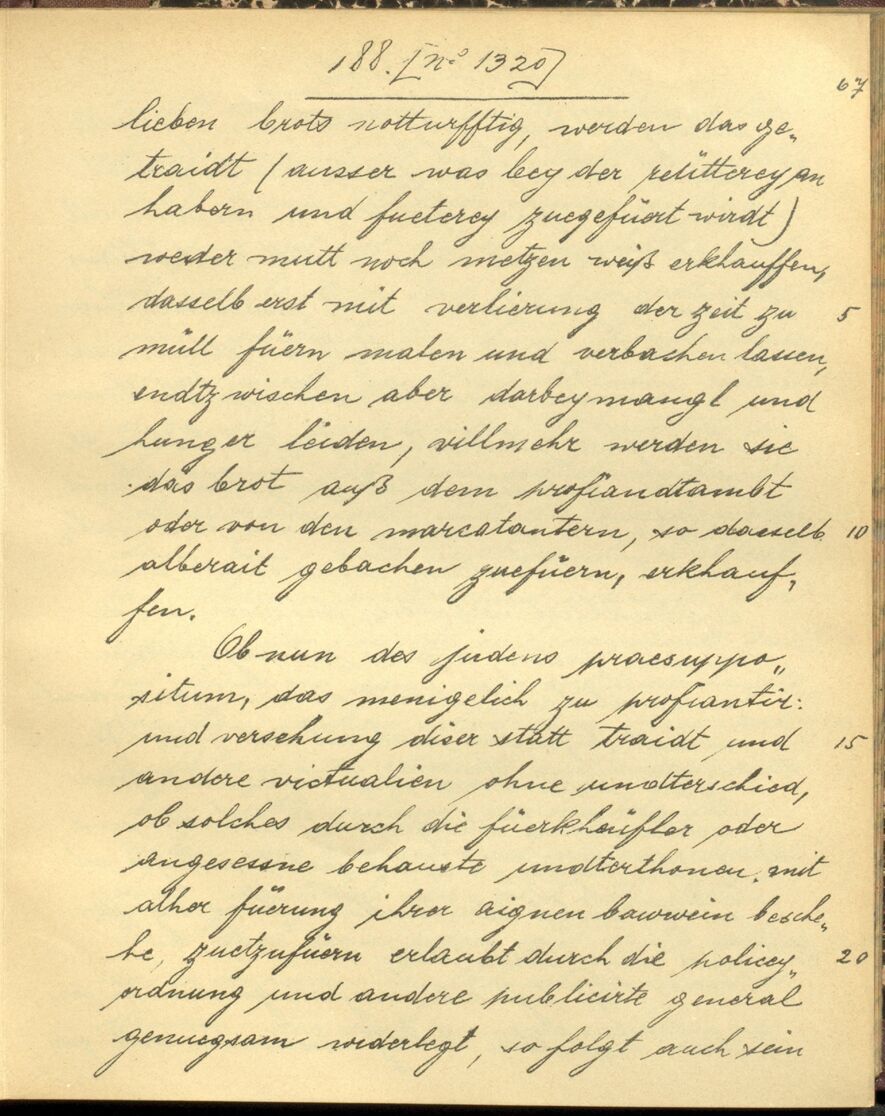 188. [nº 1320]
67
lieben brots notturfftig, werden das ge„
traidt (ausser was bey der reütterey an
habern und fueterey zuegefüert wirdt)
weder mutt noch metzen weiß erkhauffen,
dasselb erst mit verlierung der zeit zu 5
müll füern malen und verbachen lassen,
endtzwischen aber darbey mangl und
hunger leiden, villmehr werden sie
das brot auß dem profiandtambt
oder von den marcatantern, so dasselb 10
alberait gebachen zuefüern, erkhauf„
fen.
Ob nun des judens praesuppo„
situm, das menigelich zu profiantir:
und versehung diser statt traidt und 15
andere victualien ohne undterschied,
ob solches durch die füerkheüfler oder
angesessne behauste undterthonen mit
alher füerung ihrer aignen bawwein besche„
he, zuetzufüern erlaubt durch die policey„ 20
ordnung und andere publicirte general
genuegsam widerlegt, so folgt auch sein